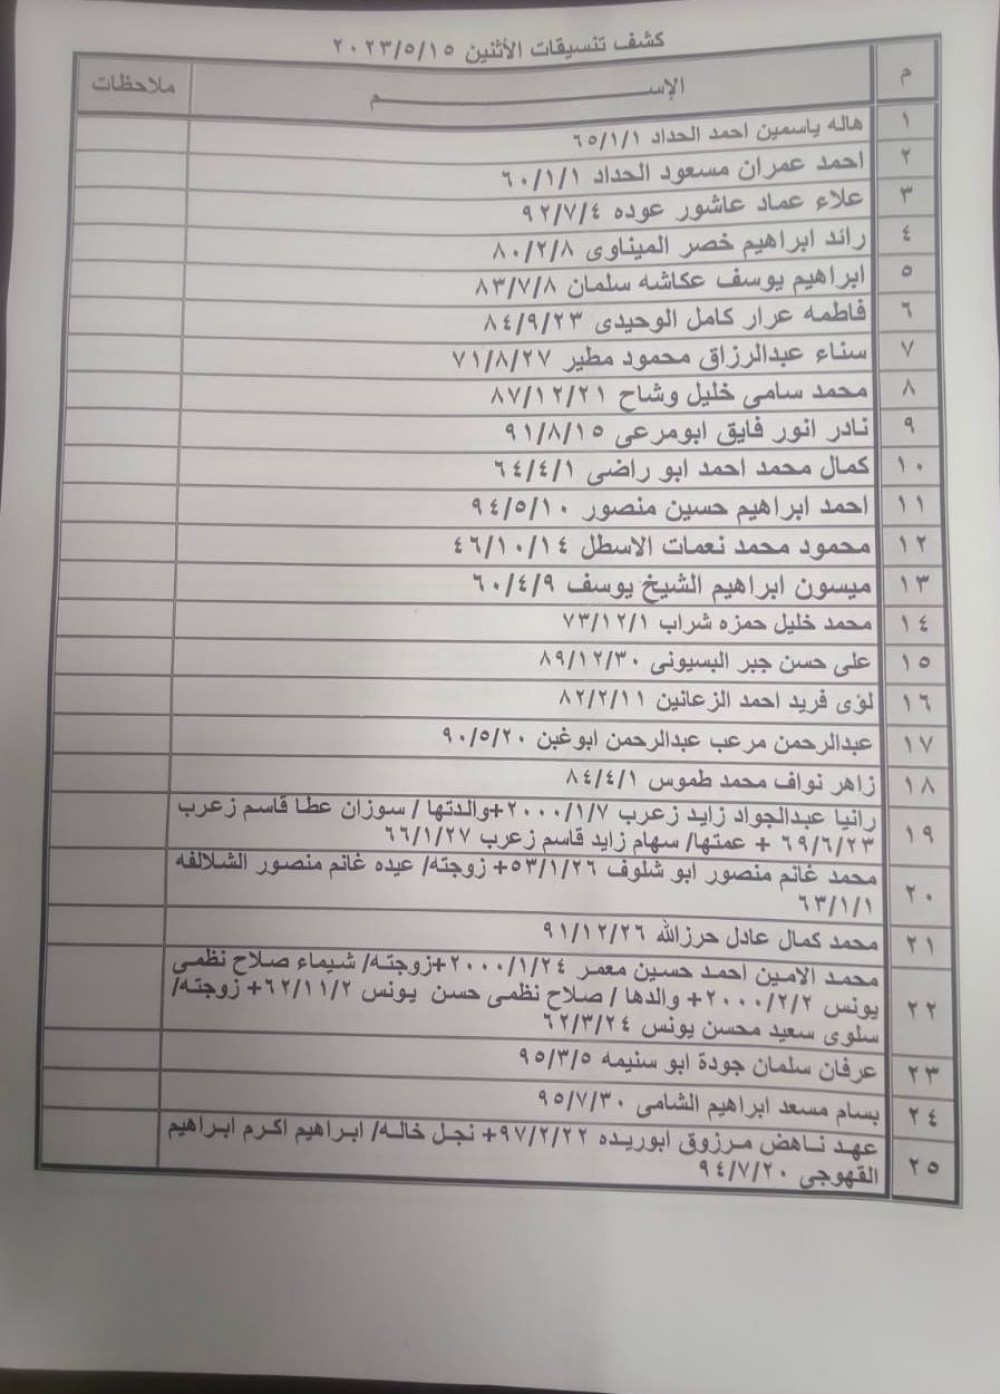 كشف تنسيقات الأثنين ٢٠٢٣/٥/١٥
م الإســـــــــم ملاحظات
١ هاله ياسمين احمد الحداد ٦٥/١/١
٢ احمد عمران مسعود الحداد ٦٠/١/١
٣ علاء عماد عاشور عوده ٩٢/٧/٤
٤ رائد ابراهيم خضر الميناوى ٨٠/٢/٨
٥ ابراهيم يوسف عكاشه سلمان ٨٣/٧/٨
٦ فاطمه عرار كامل الوحيدى ٨٤/٩/٢٣
٧ سناء عبدالرزاق محمود مطير ٧١/٨/٢٧
٨ محمد سامى خليل وشاح ٨٧/١٢/٢١
٩ نادر انور فايق ابومرعى ٩١/٨/١٥
١٠ كمال محمد احمد ابو راضى ٦٤/٤/١
١١ احمد ابراهيم حسين منصور ٩٤/٥/١٠
١٢ محمود محمد نعمات الاسطل ٤٦/١٠/١٤
١٣ ميسون ابراهيم الشيخ يوسف ٦٠/٤/٩
١٤ محمد خليل حمزه شراب ٧٣/١٢/١
١٥ على حسن جبر البسيونى ٨٩/١٢/٣٠
١٦ لؤى فريد احمد الزعانين ٨٢/٢/١١
١٧ عبدالرحمن مرعب عبدالرحمن ابوغبن ٩٠/٥/٢٠
١٨ زاهر نواف محمد طموس ٨٤/٤/١
١٩ رانيا عبدالجواد زايد زعرب ٢٠٠٠/١/٧+والدتها / سوزان عطا قاسم زعرب
٦٩/٦/٢٣ + عمتها/ سهام زايد قاسم زعرب ٦٦/١/٢٧
٢٠ محمد غانم منصور ابو شلوف ٥٣/١/٢٦+ زوجته/ عيده غانم منصور الشلالفه
٦٣/١/١
٢١ محمد كمال عادل حرزالله ٩١/١٢/٢٦
٢٢ محمد الامين احمد حسين معمر ٢٠٠٠/١/٢٤+زوجته/ شيماء صلاح نظمى
يونس ٢٠٠٠/٢/٢+ والدها / صلاح نظمى حسن يونس ٦٢/١١/٢+ زوجته/
سلوى سعيد محسن يونس ٦٢/٣/٢٤
٢٣ عرفان سلمان جودة ابو سنيمه ٩٥/٣/٥
٢٤ بسام مسعد ابراهيم الشامى ٩٥/٧/٣٠
٢٥ عهد ناهض مرزوق ابوريده ٩٧/٢/٢٢+ نجل خاله/ ابراهيم اكرم ابراهيم
القهوجى ٩٤/٧/٢٠